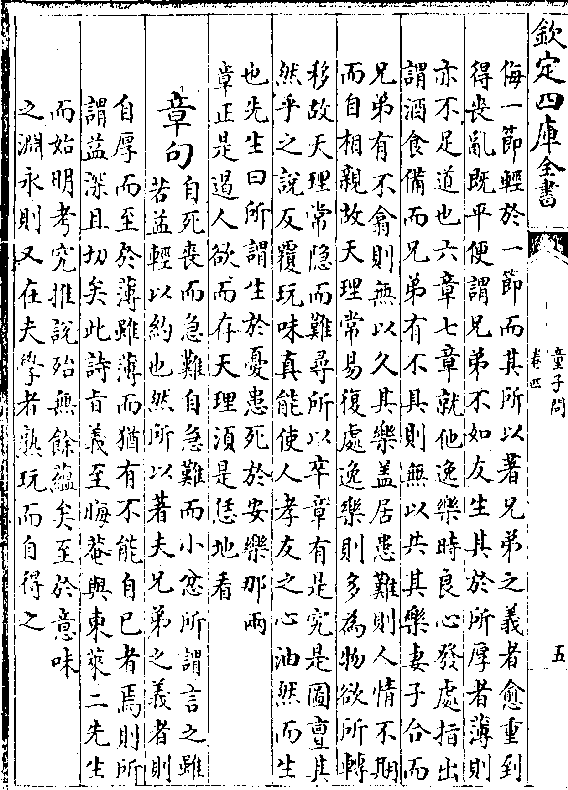 欽定四庫全書
童子問
卷四
五
侮一節輕於一節而其所以著兄弟之義者愈重到
得喪亂既平便謂兄弟不如友生其於所厚者薄則
亦不足道也六章七章就他逸樂時良心發處指出
謂酒食備而兄弟有不具則無以共其樂妻子合而
兄弟有不翕則無以久其樂盖居患難則人情不期
而自相親故天理常易復處逸樂則多為物欲所轉
移故天理常隐而難尋所以卒章有是究是圖亶其
然乎之說反覆玩味真能使人孝友之心油然而生
也先生曰所謂生於憂患死於安樂那兩
章正是遏人欲而存天理須是恁地看
章句
自死喪而急難自急難而小忿所謂言之雖
若益輕以約也然所以著夫兄弟之義者則
自厚而至於薄雖薄而猶有不能自已者焉則所
謂益深且切矣此詩㫖義至晦菴與東萊二先生
而始明考究推說殆無餘蘊矣至於意味
之淵永則又在夫學者熟玩而自得之